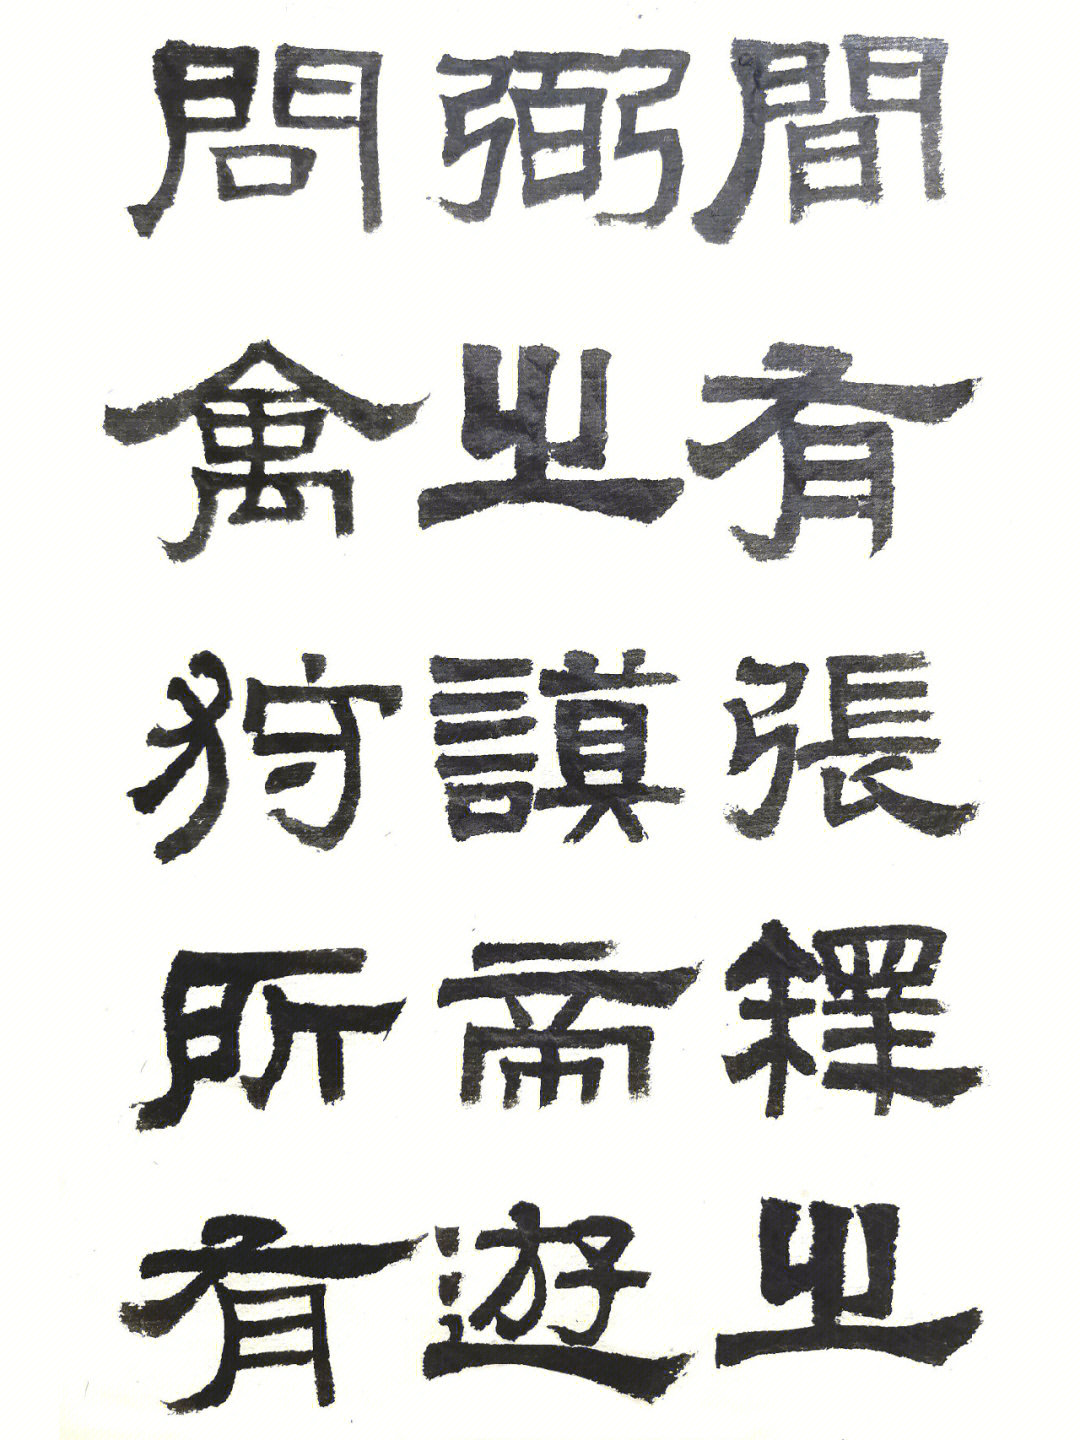 間有張釋之
弼之謨帝遊
問禽狩所有